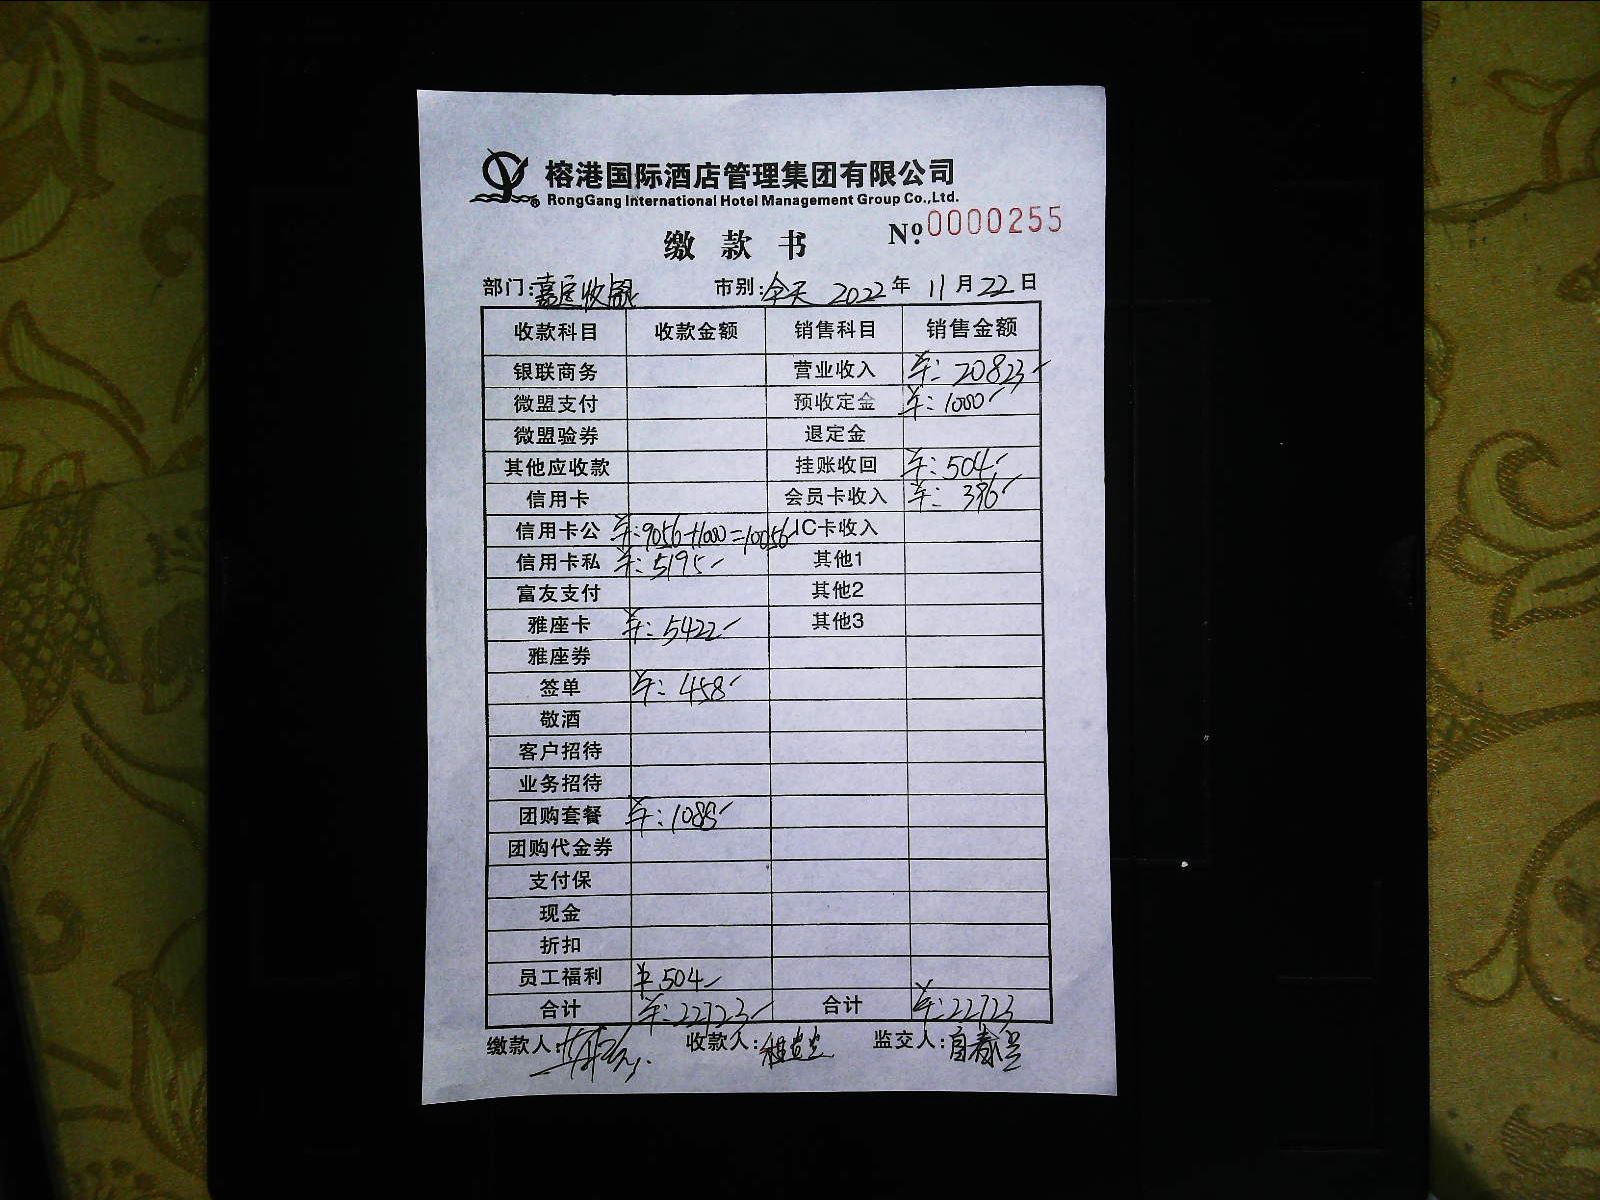 榕港国际酒店管理集团有限公司
RongGang International Hotel Management Group Co.,Ltd.
缴款书 No.0000255
部门:嘉定收银 市别:全天 2022年11月22日
收款科目 收款金额 销售科目 销售金额
银联商务 营业收入 ¥:20823
微盟支付 预收定金 ¥:1000
微盟验券 退定金
其他应收款 挂账收回 ¥:504
信用卡 会员卡收入 ¥:396
信用卡公 ¥:9056+1000=10056 IC卡收入
信用卡私 ¥:5195 其他1
富友支付 其他2
雅座卡 ¥:5422 其他3
雅座券
签单 ¥:458
敬酒
客户招待
业务招待
团购套餐 ¥:1088
团购代金券
支付保
现金
折扣
员工福利 ¥504
合计 ¥:22723 合计 ¥:22723
缴款人: 收款人: 监交人: